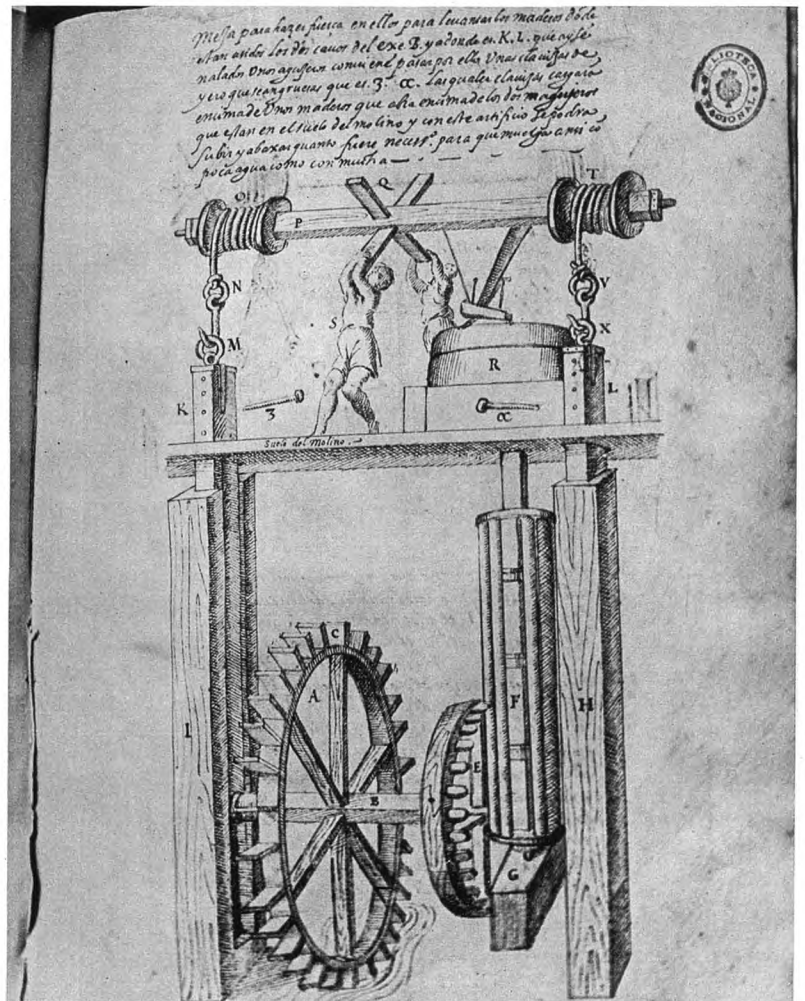 messa para hazer fuerça en ellos para levantar los maderos dōde
estan asidos los dos cavos del exe B. y adonde es. K. L. que ay se
nalados Unos agujeros conviene pasar por ellos Unas clavijas de
yero que sean gruesas que es. 3. α. las quales clavijas cargara
en sima de Unos maderos que alla en sima de los dos
que estan en el suelo del molino y con este artificio se podra
subir y abaxar quanto fuere necess.º para que muelga a mi cō
poca agua como con mucha
BIBLIOTECA
NACIONAL
Q
T
O
P
N
V
S
M
X
R
K
L
3
α
Suelo del Molino.
C
A
I
F
H
E
B
G